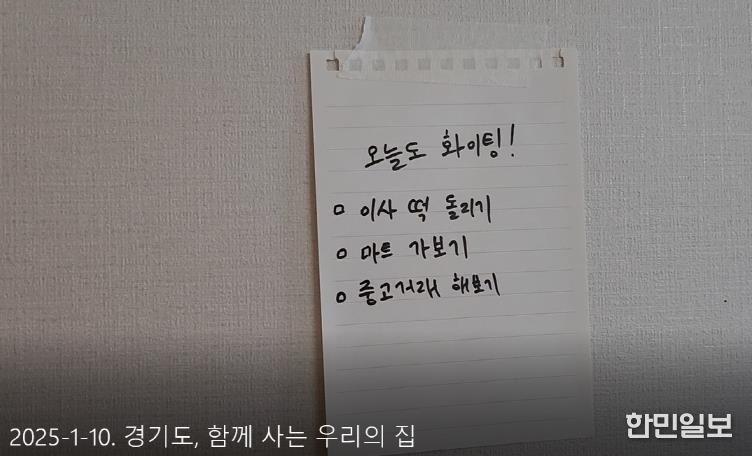 오늘도 화이팅!
▫ 이사 떡 돌리기
▫ 마트 가보기
▫ 중고거래 해보기
2025-1-10. 경기도, 함께 사는 우리의 집
한민일보